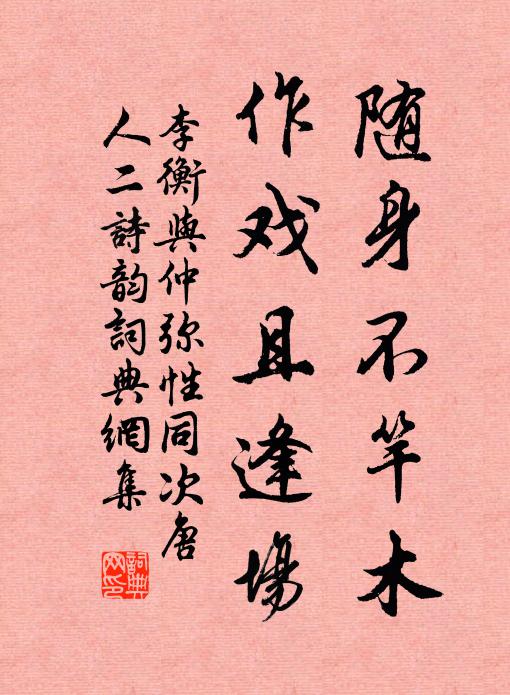 随身不竿木
作戏且逢場
李衡與仲弥性同次唐
人二詩韵詞典網集
詞典
网印